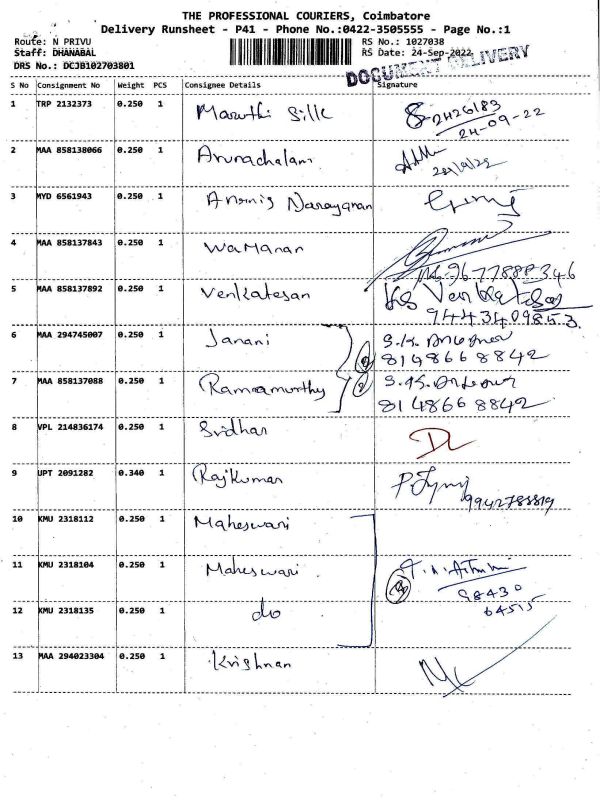 THE PROFESSIONAL COURIERS, Coimbatore
Delivery Runsheet - P41 - Phone No.:0422-3505555 - Page No.:1
Route: N PRIVU RS No.: 1027038
Staff: DHANABAL RS Date: 24-Sep-2022
DRS No.: DCJB102703801
DOCUMENT DELIVERY
S No Consignment No Weight PCS Consignee Details Signature
1 TRP 2132373 0.250 1 Maruthi Silk 2426183
24-09-22
2 MAA 858138066 0.250 1 Arunachalam
24/9/22
3 MYD 6561943 0.250 1 Narayanan
4 MAA 858137843 0.250 1 WaManan
9677888346
5 MAA 858137892 0.250 1 Venkatesan
9443409853
6 MAA 294745007 0.250 1 Janani S.K.
8148668842
7 MAA 858137088 0.250 1 Ramamurthy
8148668842
8 VPL 214836174 0.250 1 Sridhar
9 UPT 2091282 0.340 1 Rajkumar
10 KMU 2318112 0.250 1 Maheswari
11 KMU 2318104 0.250 1 Maheswari
98430
64515
12 KMU 2318135 0.250 1 do
13 MAA 294023304 0.250 1 Krishnan